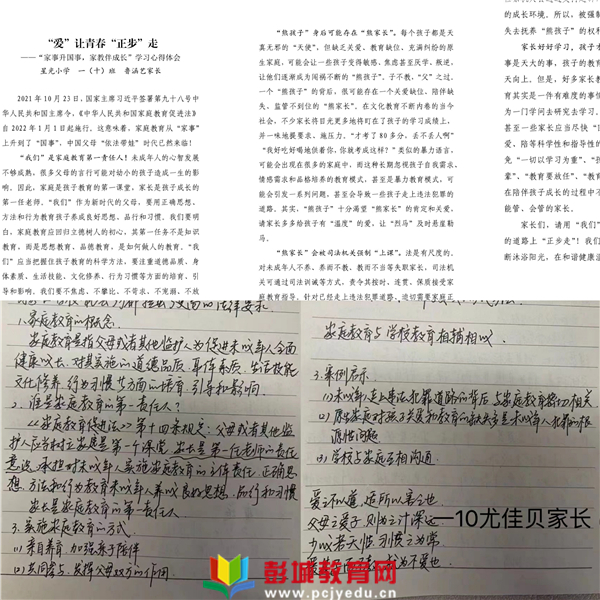 “爱”让青春“正步”走
——“家事升国事，家教伴成长”学习心得体会
星光小学 一（十）班 鲁涵艺家长
2021年10月23日，国家主席习近平签署第九十八号中
华人民共和国主席令，《中华人民共和国家庭教育促进法》
自2022年1月1日起施行。这意味着，家庭教育从“家事”
上升到了“国事”，中国父母“依法带娃”时代已然来临！
“我们”是家庭教育第一责任人！未成年人的心智发展
不够成熟，很多父母的言行可能对幼小的孩子造成一生的影
响。因此，家庭是孩子教育的第一课堂，家长是孩子成长的
第一任老师。“我们”作为新时代的父母，要用正确思想、
方法和行为教育孩子养成良好思想、品行和习惯。我们要明
白，家庭教育应回归立德树人的初心。其第一任务不是知识
教育，而是思想教育，品德教育，是如何做人的教育。“我
们”应当把握住孩子教育的科学方法，要注重道德品质、身
体素质、生活技能、文化修养、行为习惯等方面的培育，引
导和影响。我们要不焦虑、不攀比、不苛求、不宠溺、不放
“熊孩子”身后可能存在“熊家长”。每个孩子都是天
真无邪的“天使”，但缺乏关爱、教育缺位、充满纠纷的原
生家庭，可能会让一些孩子变得敏感、焦虑甚至厌学、叛逆，
让他们逐渐成为闯祸不断的“熊孩子”。子不教，“父”之过，
一个“熊孩子”的背后，很可能存在一个关爱缺位、陪伴缺
失、监管不到位的“熊家长”。在文化教育不断内卷的当今
社会，不少家长将目光更多地将盯在了孩子的学习成绩上，
并一味地要求、施压力。“才考了80多分，丢不丢人啊”
“我好吃好喝地供着你，你就考成这样？”类似的暴力语言，
可能会出现在很多的家庭中，而这种长期忽视孩子自我需求、
情感需求和品格培养的教育模式，甚至是暴力教育模式，可
能会引发一系列问题，甚至会导致一些孩子走上违法犯罪的
道路。其实，“熊孩子”十分渴望“熊家长”的肯定和关爱，
请家长多多给孩子有“温度”的爱，让“烈马”及时悬崖勒
马。
“熊家长”会被司法机关强制“上课”。法是有尺度的，
对未成年人不养、养而不教、教而不当等失职家长，司法机
关可通过司法训诫等方式，责令其按时、连贯、保质接受家
庭教育指导。针对已经走上违法犯罪道路，迫切需要家庭正
的成长环境。所以，被强制
失去抚养“熊孩子”的权利
家长好好学习，孩子才
事是天大的事，孩子的教
时刻挂念。好多家长教育
育其实是一件有难度的事情
为一门学问去研究去学习。
甚至一些家长应当尽快“
爱，陪等科学性和指导性的
免“一切以学习为重”、“
辈”、“教育要放任”、“教
在陪伴孩子成长的过程中不
能管，会管的家长。
家长们，请用“我们
的道路上“正步走”！我们
断沐浴阳光，在和谐健康温
1.家庭教育的概念
家庭教育是指父母或者其他监护人为促进未成年人全面
健康成长，对其实施的道德品质、身体素质、生活技能、
文化修养、行为习惯等方面的培育、引导和影响。
2.谁是家庭教育的第一责任人？
《家庭教育促进法》第十四条规定：父母或者其他监
护人应当树立家庭是第一个课堂、家长是第一任老师的责任
意识，承担对未成年人实施家庭教育的主体责任，正确思
想、方法和行为教育未成年人养成良好思想、品行和习惯
家长是家庭教育的第一责任人
3.实施家庭教育的方式
(1)亲自养育，加强亲子陪伴
(2)共同参与，发挥父母双方的作用
家庭教育与学校教育相辅相成。
3.案例启示
(1)未成年人走上违法犯罪道路的背后与家庭教育密切相关
(2)原生家庭对孩子关爱和教育的缺失多是未成年人犯罪的根
源性问题
(3)学校与家庭互相沟通
爱之不以道，适所以害之也
父母之爱子，则为之计深远
少成若天性，习惯之为常
一10尤佳贝家长
彭城教育网
www.pcjyedu.cn